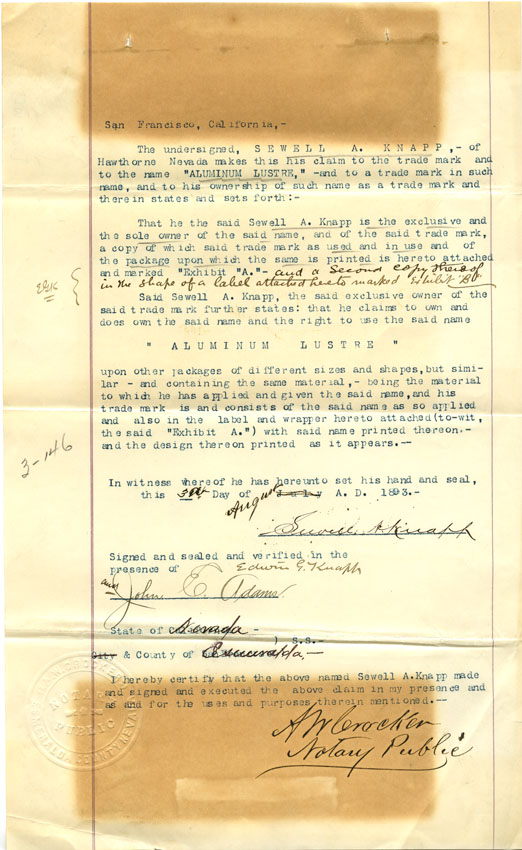 San Francisco, California,-
The undersigned, SEWELL A. KNAPP,- of
Hawthorne Nevada makes this his claim to the trade mark and
to the name "ALUMINUM LUSTRE," -and to a trade mark in such
name, and to his ownership of such name as a trade mark and
therein states and sets forth:-
That he the said Sewell A. Knapp is the exclusive and
the sole owner of the said name, and of the said trade mark,
a copy of which said trade mark as used and in use and of
the package upon which the same is printed is hereto attached
and marked "Exhibit "A."- and a second copy thereof
in the shape of a label attached hereto marked Exhibit "B"
Said Sewell A. Knapp, the said exclusive owner of the
said trade mark further states: that he claims to own and
does own the said name and the right to use the said name
" ALUMINUM LUSTRE "
upon other packages of different sizes and shapes, but simi-
lar - and containing the same material,- being the material
to which he has applied and given the said name, and his
trade mark is and consists of the said name as so applied
and also in the label and wrapper hereto attached(to-wit,
the said "Exhibit A.") with said name printed thereon.-
and the design thereon printed as it appears.--
3-146
In witness whereof he has hereunto set his hand and seal,
this 3rd Day of July August A. D. 1893.-
Sewell A Knapp
Signed and sealed and verified in the
presence of Edwin G. Knapp
and John E. Adams
State of Nevada-
) S.S.-
City & County of Esmeralda,-
I hereby certify that the above named Sewell A.Knapp made
and signed and executed the above claim in my presence and
as and for the uses and purposes therein mentioned.--
A W Crocker
Notary Public
NOTARY
PUBLIC